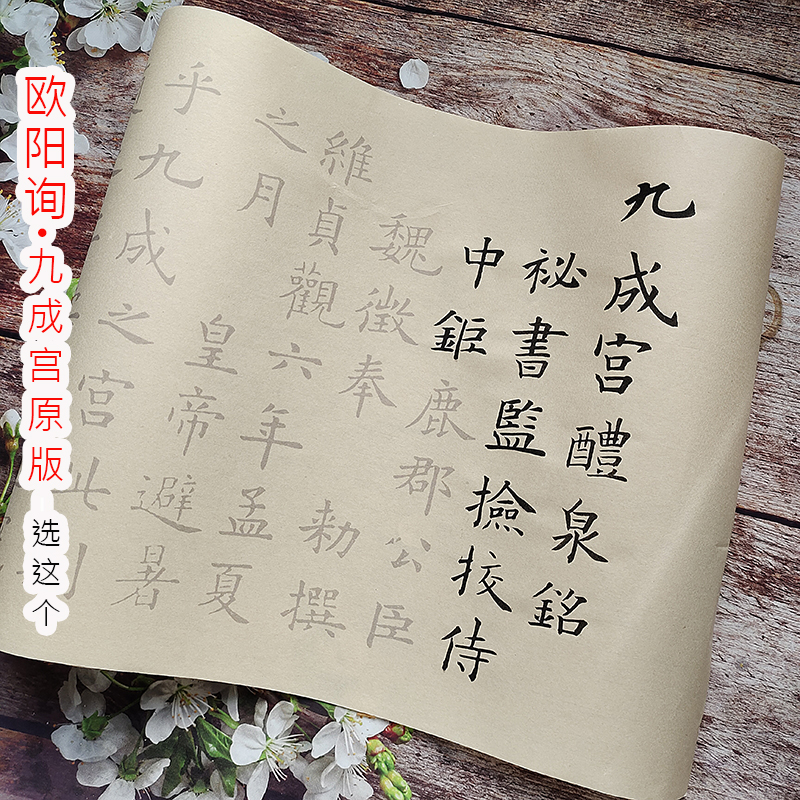 欧阳询•九成宫原版
选这个
九成宫醴泉銘
祕書監撿挍侍
中鉅鹿郡公臣
魏徵奉勅撰
維貞觀六年孟夏
之月皇帝避暑
乎九成之宫此